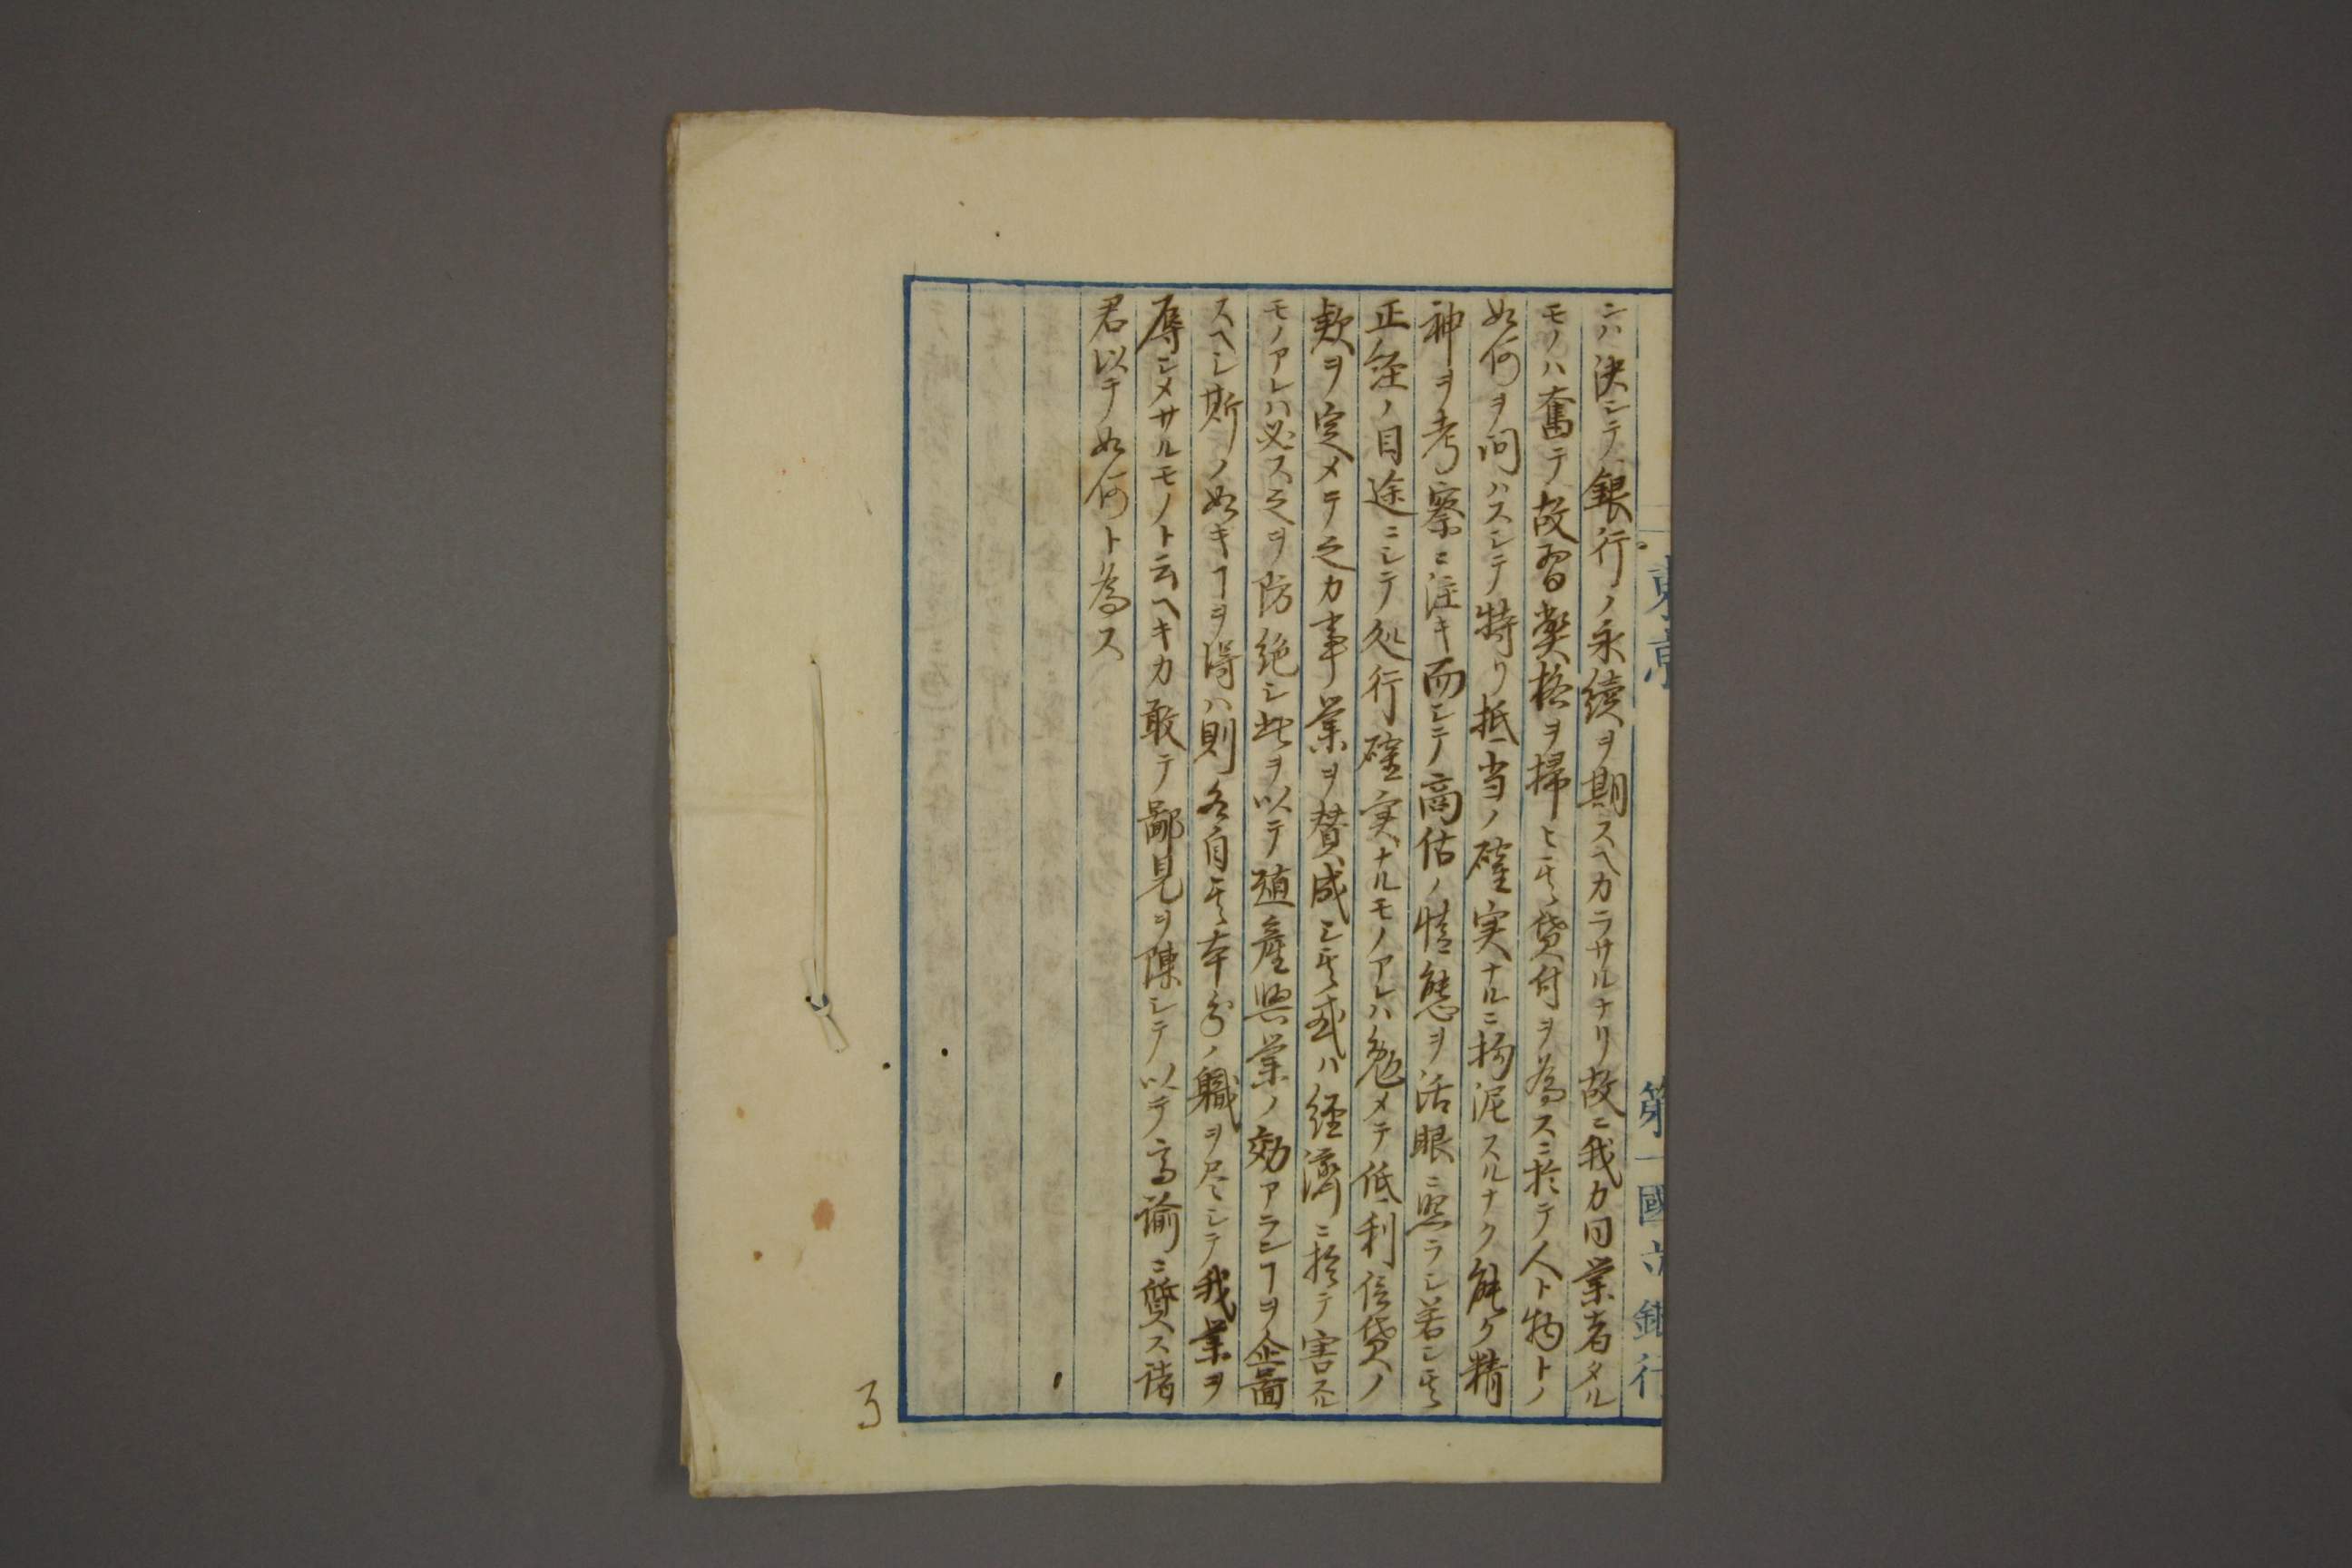 東京 第一國立銀行
ニハ決シテ銀行ノ永續ヲ期スヘカラサルナリ故ニ我カ同業者タル
モノハ奮テ故習弊格ヲ掃ヒ其貸付ヲ為スニ於テ人ト物トノ
如何ヲ問ハスシテ特リ抵当ノ確実ナルニ拘泥スルナク能ク精
神ヲ考察ニ注キ而シテ商估ノ情態ヲ活眼ニ照ラシ若シ其
正経ノ目途ニシテ処行確実ナルモノアレハ勉メテ低利信貸ノ
欵ヲ定メテ之カ事業ヲ賛成シ其或ハ経濟ニ於テ害スル
モノアレハ必ス之ヲ防絶シ此ヲ以テ殖産興業ノ効アランヿヲ企啚
スヘシ斯ノ如キヿヲ得ハ則各自其本分ノ職ヲ尽シテ我業ヲ
辱シメサルモノト云ヘキカ敢テ鄙見ヲ陳シテ以テ高諭ニ質ス諸
君以テ如何ト為ス